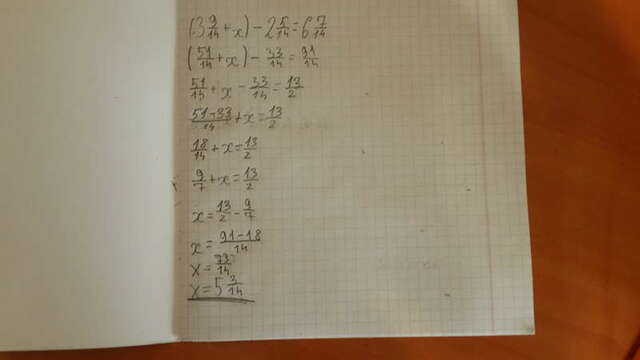 (3 9/14 + x) - 2 5/14 = 6 7/14
(51/14 + x) - 33/14 = 91/14
51/14 + x - 33/14 = 13/2
51-33/14 + x = 13/2
18/14 + x = 13/2
9/7 + x = 13/2
x = 13/2 - 9/7
x = 91-18/14
x = 73/14
x = 5 3/14